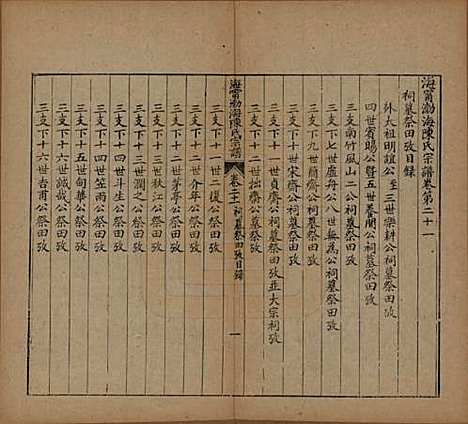 海甯渤海陳氏宗譜卷第二十一
祠墓祭田攷目錄
外太祖明誼公至三世樂耕公祠墓祭田攷
四世賓暘公曁五世養閒公祠墓祭田攷
三支南竹風山二公祠墓祭田攷
三支下七世虛舟公八世無為公祠墓祭田攷
三支下九世簡齋公祠墓祭田攷並大宗祠攷
三支下十世宋齋公祠墓祭田攷
三支下十一世拙齋公祭田攷
海甯渤海陳氏宗譜 卷二十一 祠墓祭田攷目錄 一
三支下十一世二復公祭田攷
三支下十二世介年公祭田攷
三支下十二世茅亭公祭田攷
三支下十三世秋江公祭田攷
三支下十三世潤之公祭田攷
三支下十四世斗生公祭田攷
三支下十四世笠雨公祭田攷
三支下十五世甸華公祭田攷
三支下十六世誠哉公祭田攷
三支下十六世吉甫公祭田攷